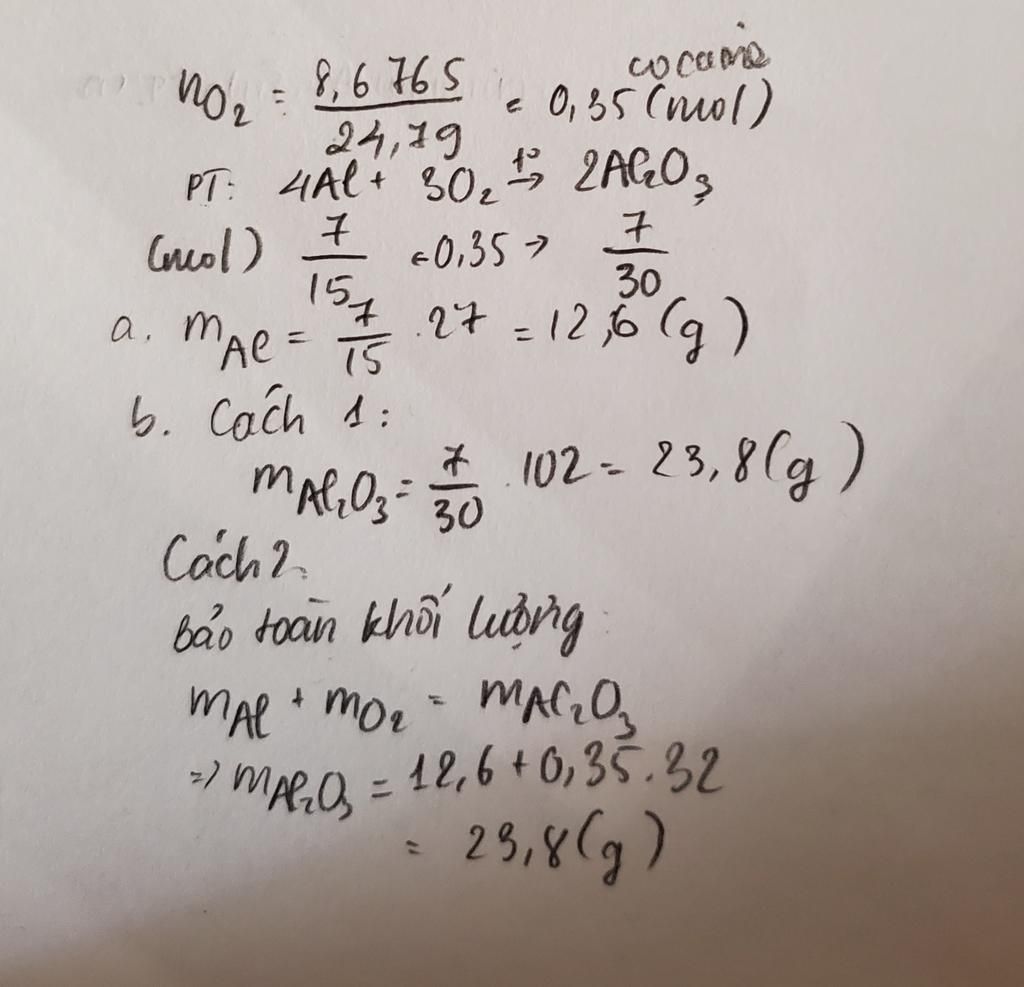 cocaine
nO₂ = 8,6765/24,79 = 0,35 (mol)
PT: 4Al + 3O₂ t°→ 2Al₂O₃
(mol) 7/15 ← 0,35 → 7/30
a. mAl = 7/15 . 27 = 12,6 (g)
b. Cách 1:
mAl₂O₃ = 7/30 . 102 = 23,8 (g)
Cách 2.
Bảo toàn khối lượng:
mAl + mO₂ = mAl₂O₃
=> mAl₂O₃ = 12,6 + 0,35.32
= 23,8 (g)